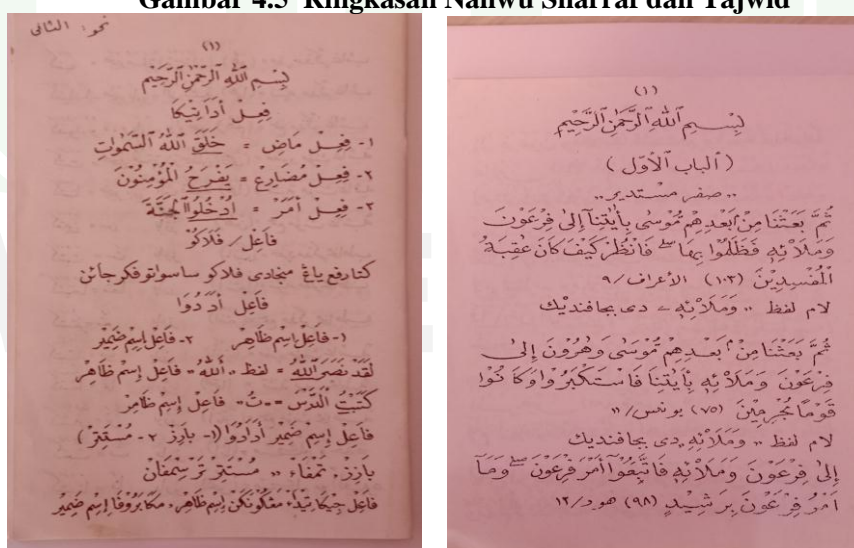 Gambar 4.5 Ringkasan Nahwu Sharraf dan Tajwid
نحو: الثانى
(١)
بِسْمِ ٱللّٰهِ ٱلرَّحْمٰنِ ٱلرَّحِيْمِ
فِعِلْ أَدَا تِيْكَا
١- فِعِلْ مَاضِ = خَلَقَ ٱللّٰهُ ٱلسَّمٰوٰتِ
٢- فِعِلْ مُضَارِعْ = يَفْرَحُ الْمُؤْمِنُوْنَ
٣- فِعِلْ أَمَرْ = اُدْخُلُوا الْجَنَّةَ
فَاعِلْ / فَلَاكُوْ
كتا رفع ياڠ منجادى فلاكو ساسواتو فكرجائن
فَاعِلْ أَدَ دُوَا
١- فَاعِلْ إِسِمْ ظَاهِرْ ٢- فَاعِلْ إِسِمْ ضَمِيْر
لَقَدْ نَصَرَ ٱللّٰهُ = لفظ ,, ٱللّٰهُ ,, فَاعِلْ إِسِمْ ظَاهِرْ
كَتَبْتُ ٱلدَّرْسَ = -تُ- فَاعِلْ إِسِمْ ظَامِرْ
فَاعِلْ إِسِمْ ضَمِيْر أَدَا دُوَا (١- بَارِزْ ٢- مُسْتَتِرْ)
بَارِزْ = نَمْفَاء ,, مُسْتَتِرْ تَرْسِمْفَانْ
فَاعِلْ جِيْكَا تِيْدَاء مڠڬوناكن إِسِمْ ظَاهِرْ، مَكَا بَرُوْفَا إِسِمْ ضَمِيْر
(١)
بِسْمِ ٱللّٰهِ ٱلرَّحْمٰنِ ٱلرَّحِيْمِ
(ٱلْبَابُ ٱلْأَوَّلُ)
,, صفر مستدير ,,
ثُمَّ بَعَثْنَا مِنْۢ بَعْدِهِمْ مُّوْسٰى بِاٰيٰتِنَآ اِلٰى فِرْعَوْنَ
وَمَلَا۟ئِهٖ فَظَلَمُوْا بِهَا ۖ فَانْظُرْ كَيْفَ كَانَ عٰقِبَةُ
الْمُفْسِدِيْنَ (١٠٣) الأعراف / ٩
لام لفظ ,, وَمَلَا۟ئِهٖ ,, دى بجا فنديك
ثُمَّ بَعَثْنَا مِنْۢ بَعْدِهِمْ مُّوْسٰى وَهٰرُوْنَ اِلٰى
فِرْعَوْنَ وَمَلَا۟ئِهٖ بِاٰيٰتِنَا فَاسْتَكْبَرُوْا وَكَانُوْا
قَوْمًا مُّجْرِمِيْنَ (٧٥) يونس / ١١
لام لفظ ,, وَمَلَا۟ئِهٖ ,, دى بجا فنديك
اِلٰى فِرْعَوْنَ وَمَلَا۟ئِهٖ فَاتَّبَعُوْٓا اَمْرَ فِرْعَوْنَ ۖ وَمَآ
اَمْرُ فِرْعَوْنَ بِرَشِيْدٍ (٩٨) هود / ١٢